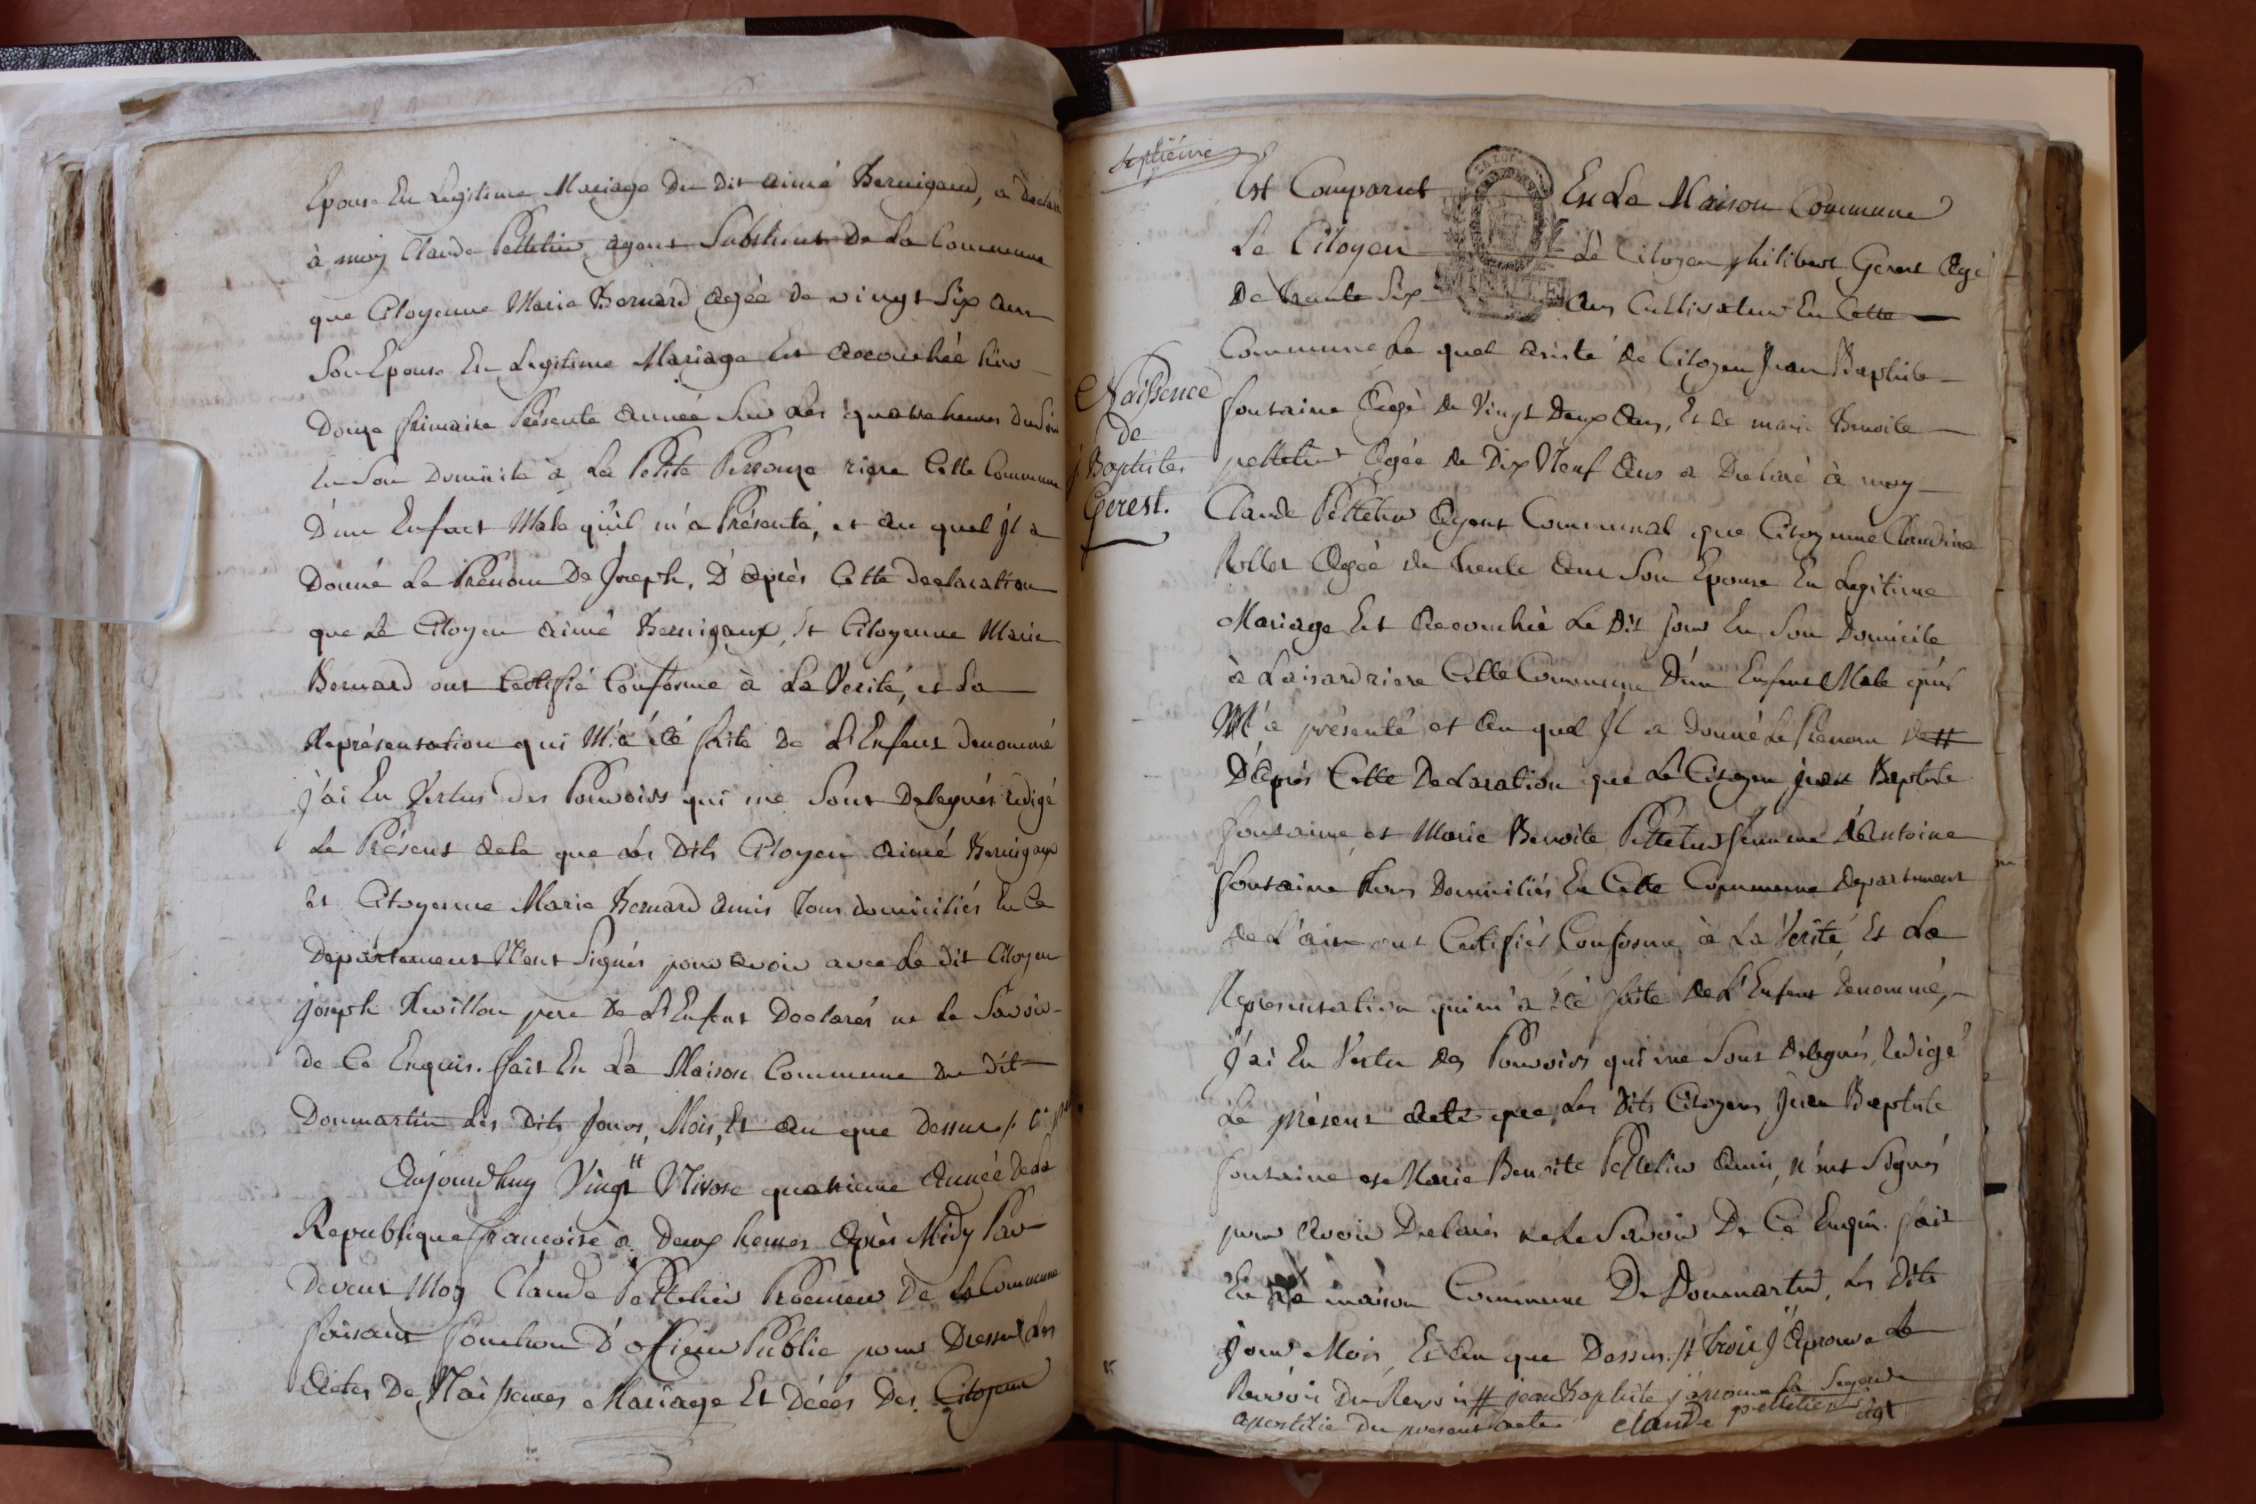 Epouse En Legitime Mariage Du Dit aimé Bernigaud, a Declaré
à moy Claude Pelletier agent Substitut De La Commune
que Citoyenne Marie Bernard agée de vingt Six ans
Son Epouse En Legitime Mariage Est accouchée hier
Douze frimaire Présente année Sur Les quatre heures Du Soir
En Son Domicile à La Petite riere Cette Commune
D'un Enfant Male qu'il m'a Présenté, et au quel Jl a
Donné Le Prénom De Joseph, D'après Cette declaration
que Le Citoyen aimé Bernigaux, Et Citoyenne Marie
Bernard ont Certifié Conforme à La Verité, et La
Représentation qui M'a été faite De L'Enfant denommé
j'ai En Vertus des Pouvoirs qui me Sont Delegués redigé
Le Présent acte que Les Dits Citoyen aimé Bernigaux
Et Citoyenne Marie Bernard amis tous domiciliés En Ce
Departement N'ont Signés pour avoir avec Le dit Citoyen
joseph pere De L'Enfant Declarés ne Le Savoir
de Ce Enquis. fait En La Maison Commune du dit
Donmartin Les dits Jours, Mois, Et an que Dessus
Aujourdhuy Vingt # Nivose quatrieme Année De La
Republique françoise à Deux heures Après Midy Par
devant Moy Claude Pelletier Procureur De La Commune
faisant fonction D'officier Public pour Dresser Les
Actes De Naissences Mariage Et Décés Des Citoyens
Septiéme
Est Comparut En La Maison Commune
Le Citoyen Le Citoyen philibert Gerest Agé
De trente Six Ans Cultivateur En Cette
Commune Le quel assisté de Citoyen Jean Baptiste
Naissence
de
j Baptiste
Gerest.
fontaine Agé de Vingt Deux Ans, Et de marie Benoite
pelletier Agée de Dix Neuf Ans a Declaré à moy
Claude Pelletier Agent Communal que Citoyenne Claudine
Rollet Agée de trente Ans Son Epouse En Legitime
Mariage Est Accouchée Le Dit Jour En Son Domicile
à riere Cette Commune D'un Enfant Male qu'il
M'a présenté et Au quel Jl a Donné Le Prénom de #
D'Après Cette Declaration que Le Citoyen jean Baptiste
fontaine et Marie Benoite Pelletier femme d'Antoine
fontaine tous Domiciliés En Cette Commune Departement
de L'ain ont Certifiés Conforme à La Verité, Et La
Representation qui m'a été faite De L'Enfant denommé,
J'ai En Vertu des Pouvoirs qui me Sont Delegués, Redigé
Le présent Acte que Les Dits Citoyens Jean Baptiste
fontaine et Marie Benoite Pelletier Amis, N'ont Signés
pour Avoir Declarés ne Le Savoir De Ce Enquis. fait
En La maison Commune De Donmartin, Les Dits
Jour Mois, Et An que Dessus. # trois J'Aprouve Le
Renvoi # jean Baptiste j'aprouve La Segonde
apostilie Du present acte Claude pelletier agt